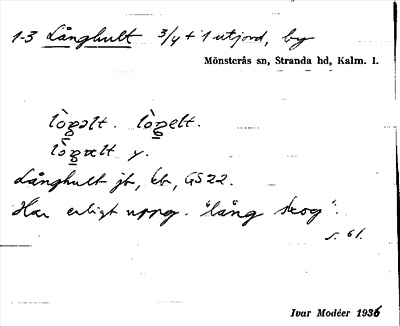 1-3 Långhult 3/4 + 1 utjord, by
Mönsterås sn, Stranda hd, Kalm. l.
lògəlt. lògelt.
lògælt y.
Långhult jb, kb, GS22.
Har enligt uppg. "lång skog".
s. 61.
Ivar Modéer 1936